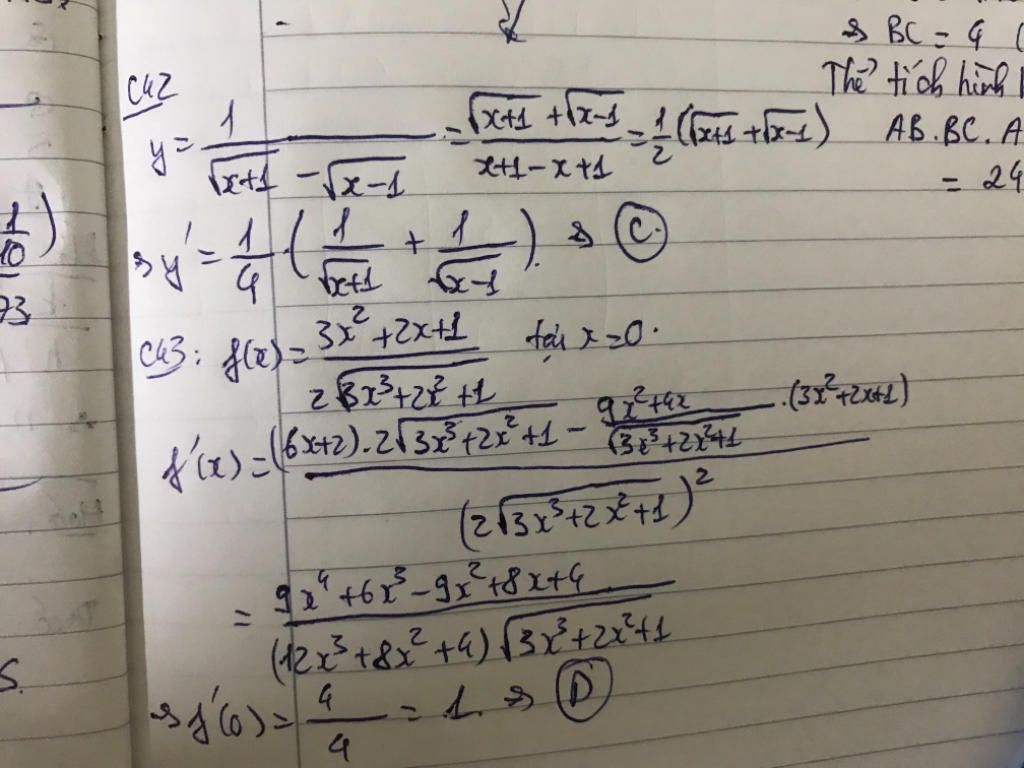 ⇒ BC = 4 (
Thể tích hình
AB.BC.A
= 24
1
10 )
73
S.
C42
y = 1/(√(x+1) - √(x-1)) = (√(x+1) + √(x-1))/(x+1-x+1) = 1/2 (√(x+1) + √(x-1))
⇒ y' = 1/4 · (1/√(x+1) + 1/√(x-1)). ⇒ C.
C43: f(x) = (3x²+2x+1)/(2√(3x³+2x²+1)) tại x=0.
f'(x) = ((6x+2).2√(3x³+2x²+1) - (9x²+4x)/√(3x³+2x²+1) .(3x²+2x+1))/(2√(3x³+2x²+1))²
= (9x⁴+6x³-9x²+8x+4)/((12x³+8x²+4)√(3x³+2x²+1))
⇒ f'(0) = 4/4 = 1. ⇒ D